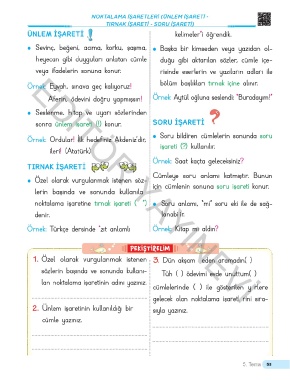 NOKTALAMA İŞARETLERİ (ÜNLEM İŞARETİ -
TIRNAK İŞARETİ - SORU İŞARETİ)
ÜNLEM İŞARETİ
Sevinç, beğeni, acıma, korku, şaşma,
heyecan gibi duyguları anlatan cümle
veya ifadelerin sonuna konur.
Örnek: Eyvah, sınava geç kalıyoruz!
Aferin, ödevini doğru yapmışsın!
Seslenme, hitap ve uyarı sözlerinden
sonra ünlem işareti (!) konur.
Örnek: Ordular! İlk hedefiniz Akdeniz'dir,
ileri! (Atatürk)
TIRNAK İŞARETİ
Özel olarak vurgulanmak istenen söz-
lerin başında ve sonunda kullanılan
noktalama işaretine tırnak işareti (" ")
denir.
Örnek: Türkçe dersinde "zıt anlamlı
kelimeler"i öğrendik.
Başka bir kimseden veya yazıdan ol-
duğu gibi aktarılan sözler, cümle içe-
risinde eserlerin ve yazıların adları ile
bölüm başlıkları tırnak içine alınır.
Örnek: Aytül oğluna seslendi: "Buradayım!"
SORU İŞARETİ
?
Soru bildiren cümlelerin sonunda soru
işareti (?) kullanılır.
Örnek: Saat kaçta geleceksiniz?
Cümleye soru anlamı katmıştır. Bunun
için cümlenin sonuna soru işareti konur.
Soru anlamı, "mı" soru eki ile de sağ-
lanabilir.
Örnek: Kitap mı aldın?
PEKİŞTİRELİM
1. Özel olarak vurgulanmak istenen
sözlerin başında ve sonunda kullanı-
lan noktalama işaretinin adını yazınız.
2. Ünlem işaretinin kullanıldığı bir
cümle yazınız.
3. Dün akşam neden aramadın( )
Tüh ( ) ödevimi evde unuttum( )
cümlelerinde ( ) ile gösterilen yerlere
gelecek olan noktalama işaretlerini sıra-
sıyla yazınız.
5. Tema